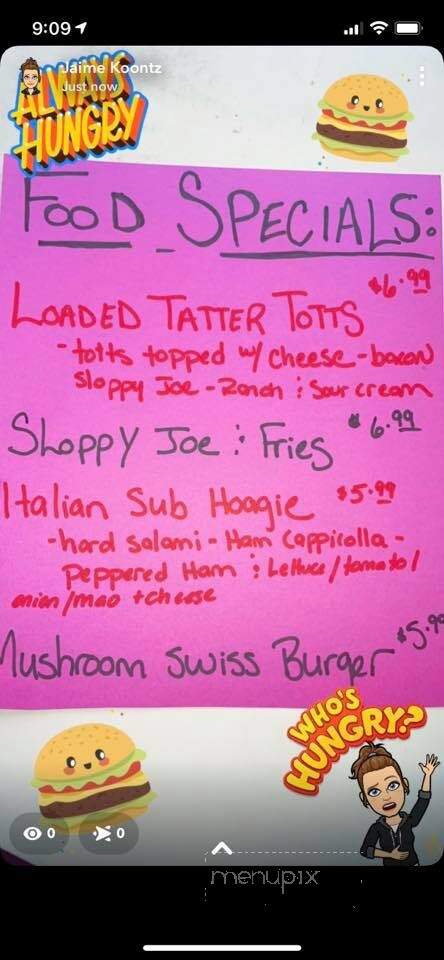 9:09
Jaime Koontz
Just now
ALWAYS
HUNGRY
FOOD SPECIALS:
LOADED TATTER TOTTS $6.99
-totts topped w/ cheese-bacon
sloppy Joe - Ranch & Sour cream
Sloppy Joe & Fries $6.99
Italian Sub Hoagie $5.99
-hard salami - Ham Cappicolla -
Peppered Ham & Lettuce/tomato/
onion/mao + cheese
Mushroom Swiss Burger $5.99
WHO'S
HUNGRY?
0 0
menupix